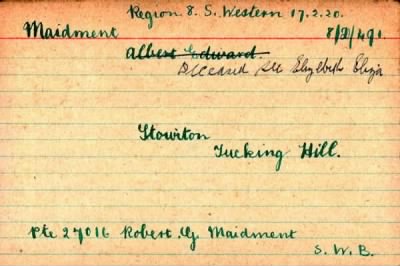 Region 8. S. Western 17.2.20.
Maidment 8/D/491.
Albert Edward.
Deceased see Elizabeth Eliza
Stowiton
Tucking Hill.
Pte 27016 Robert. G. Maidment
S. W. B.